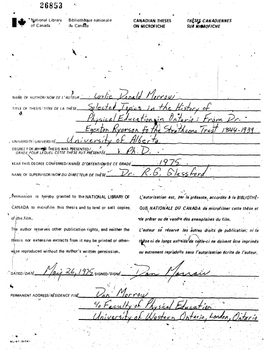 26853
National Library of Canada
Bibliothèque nationale du Canada
CANADIAN THESES ON MICROFICHE
THÈSES CANADIENNES SUR MICROFICHE
NAME OF AUTHOR/NOM DE L'AUTEUR Leslie Donald Morrow
TITLE OF THESIS/TITRE DE LA THÈSE Selected Topics in the History of
Physical Education in Ontario: From Dr.
Egerton Ryerson to the Strathcona Trust 1844-1939
UNIVERSITY/UNIVERSITÉ University of Alberta
DEGREE FOR WHICH THESIS WAS PRESENTED/
GRADE POUR LEQUEL CETTE THÈSE FUT PRÉSENTÉE Ph.D.
YEAR THIS DEGREE CONFERRED/ANNÉE D'OBTENTION DE CE GRADE 1975
NAME OF SUPERVISOR/NOM DU DIRECTEUR DE THÈSE Dr. R.G. Glassford
Permission is hereby granted to the NATIONAL LIBRARY OF
CANADA to microfilm this thesis and to lend or sell copies
of the film.
The author reserves other publication rights, and neither the
thesis nor extensive extracts from it may be printed or other-
wise reproduced without the author's written permission.
L'autorisation est, par la présente, accordée à la BIBLIOTHÈ-
QUE NATIONALE DU CANADA de microfilmer cette thèse et
de prêter ou de vendre des exemplaires du film.
L'auteur se réserve les autres droits de publication; ni la
thèse ni de longs extraits de celle-ci ne doivent être imprimés
ou autrement reproduits sans l'autorisation écrite de l'auteur.
DATED/DATÉ May 26, 1975 SIGNED/SIGNÉ Don Morrow
PERMANENT ADDRESS/RÉSIDENCE FIXE Don Morrow
c/o Faculty of Physical Education
University of Western Ontario, London, Ontario